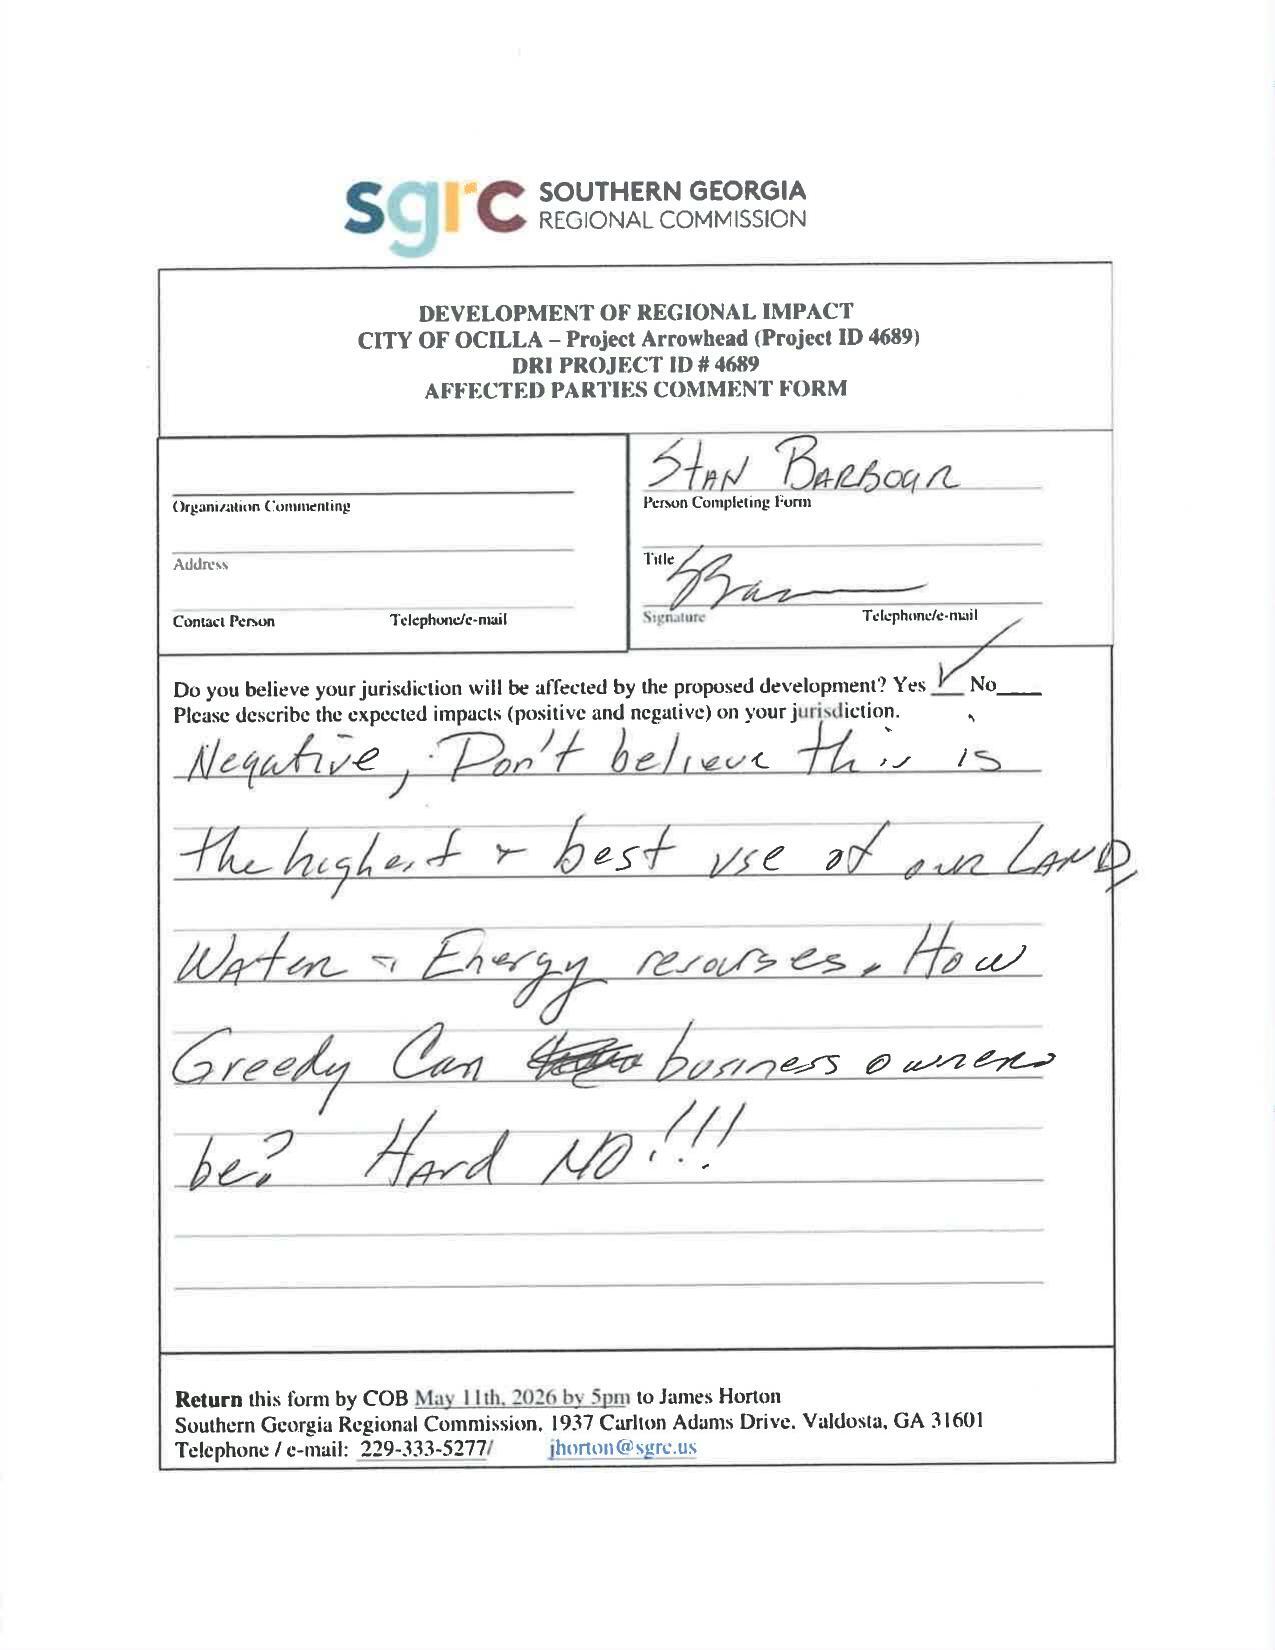 sgrc SOUTHERN GEORGIA
REGIONAL COMMISSION
DEVELOPMENT OF REGIONAL IMPACT
CITY OF OCILLA – Project Arrowhead (Project ID 4689)
DRI PROJECT ID # 4689
AFFECTED PARTIES COMMENT FORM
Organization Commenting
Address
Contact Person Telephone/e-mail
STAN BARBOUR
Person Completing Form
Title
Signature Telephone/e-mail
Do you believe your jurisdiction will be affected by the proposed development? Yes ✓ No____
Please describe the expected impacts (positive and negative) on your jurisdiction.
Negative, Don't believe this is
the highest + best use of our LAND,
WATer + Energy resourses. How
Greedy Can business owners
be? HArd NO!!!
Return this form by COB May 11th, 2026 by 5pm to James Horton
Southern Georgia Regional Commission, 1937 Carlton Adams Drive, Valdosta, GA 31601
Telephone / e-mail: 229-333-5277/ jhorton@sgrc.us